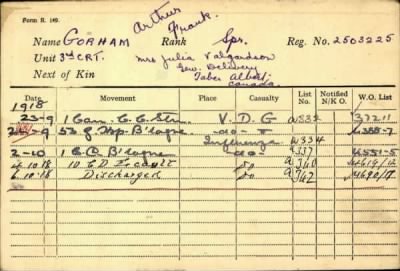 Form R. 149.
Arthur
Frank.
Name GORHAM Rank Spr. Reg. No. 2503225
Unit 3rd C.R.T. Mrs Julia Valgardson
Next of Kin Gen. Delivery
Taber Alberta
Canada.
Date Movement Place Casualty List No. Notified N/K O. W.O. List
1918
23-9 1 Can. C. C. Stn. V. D. G 37211
53 G Hsp. B'logne -do-
Influenza W334
2-10 1 C.D. B'logne -do- 337
4.10.18 10 C.D. Ecault do
6.10.18 Discharged do